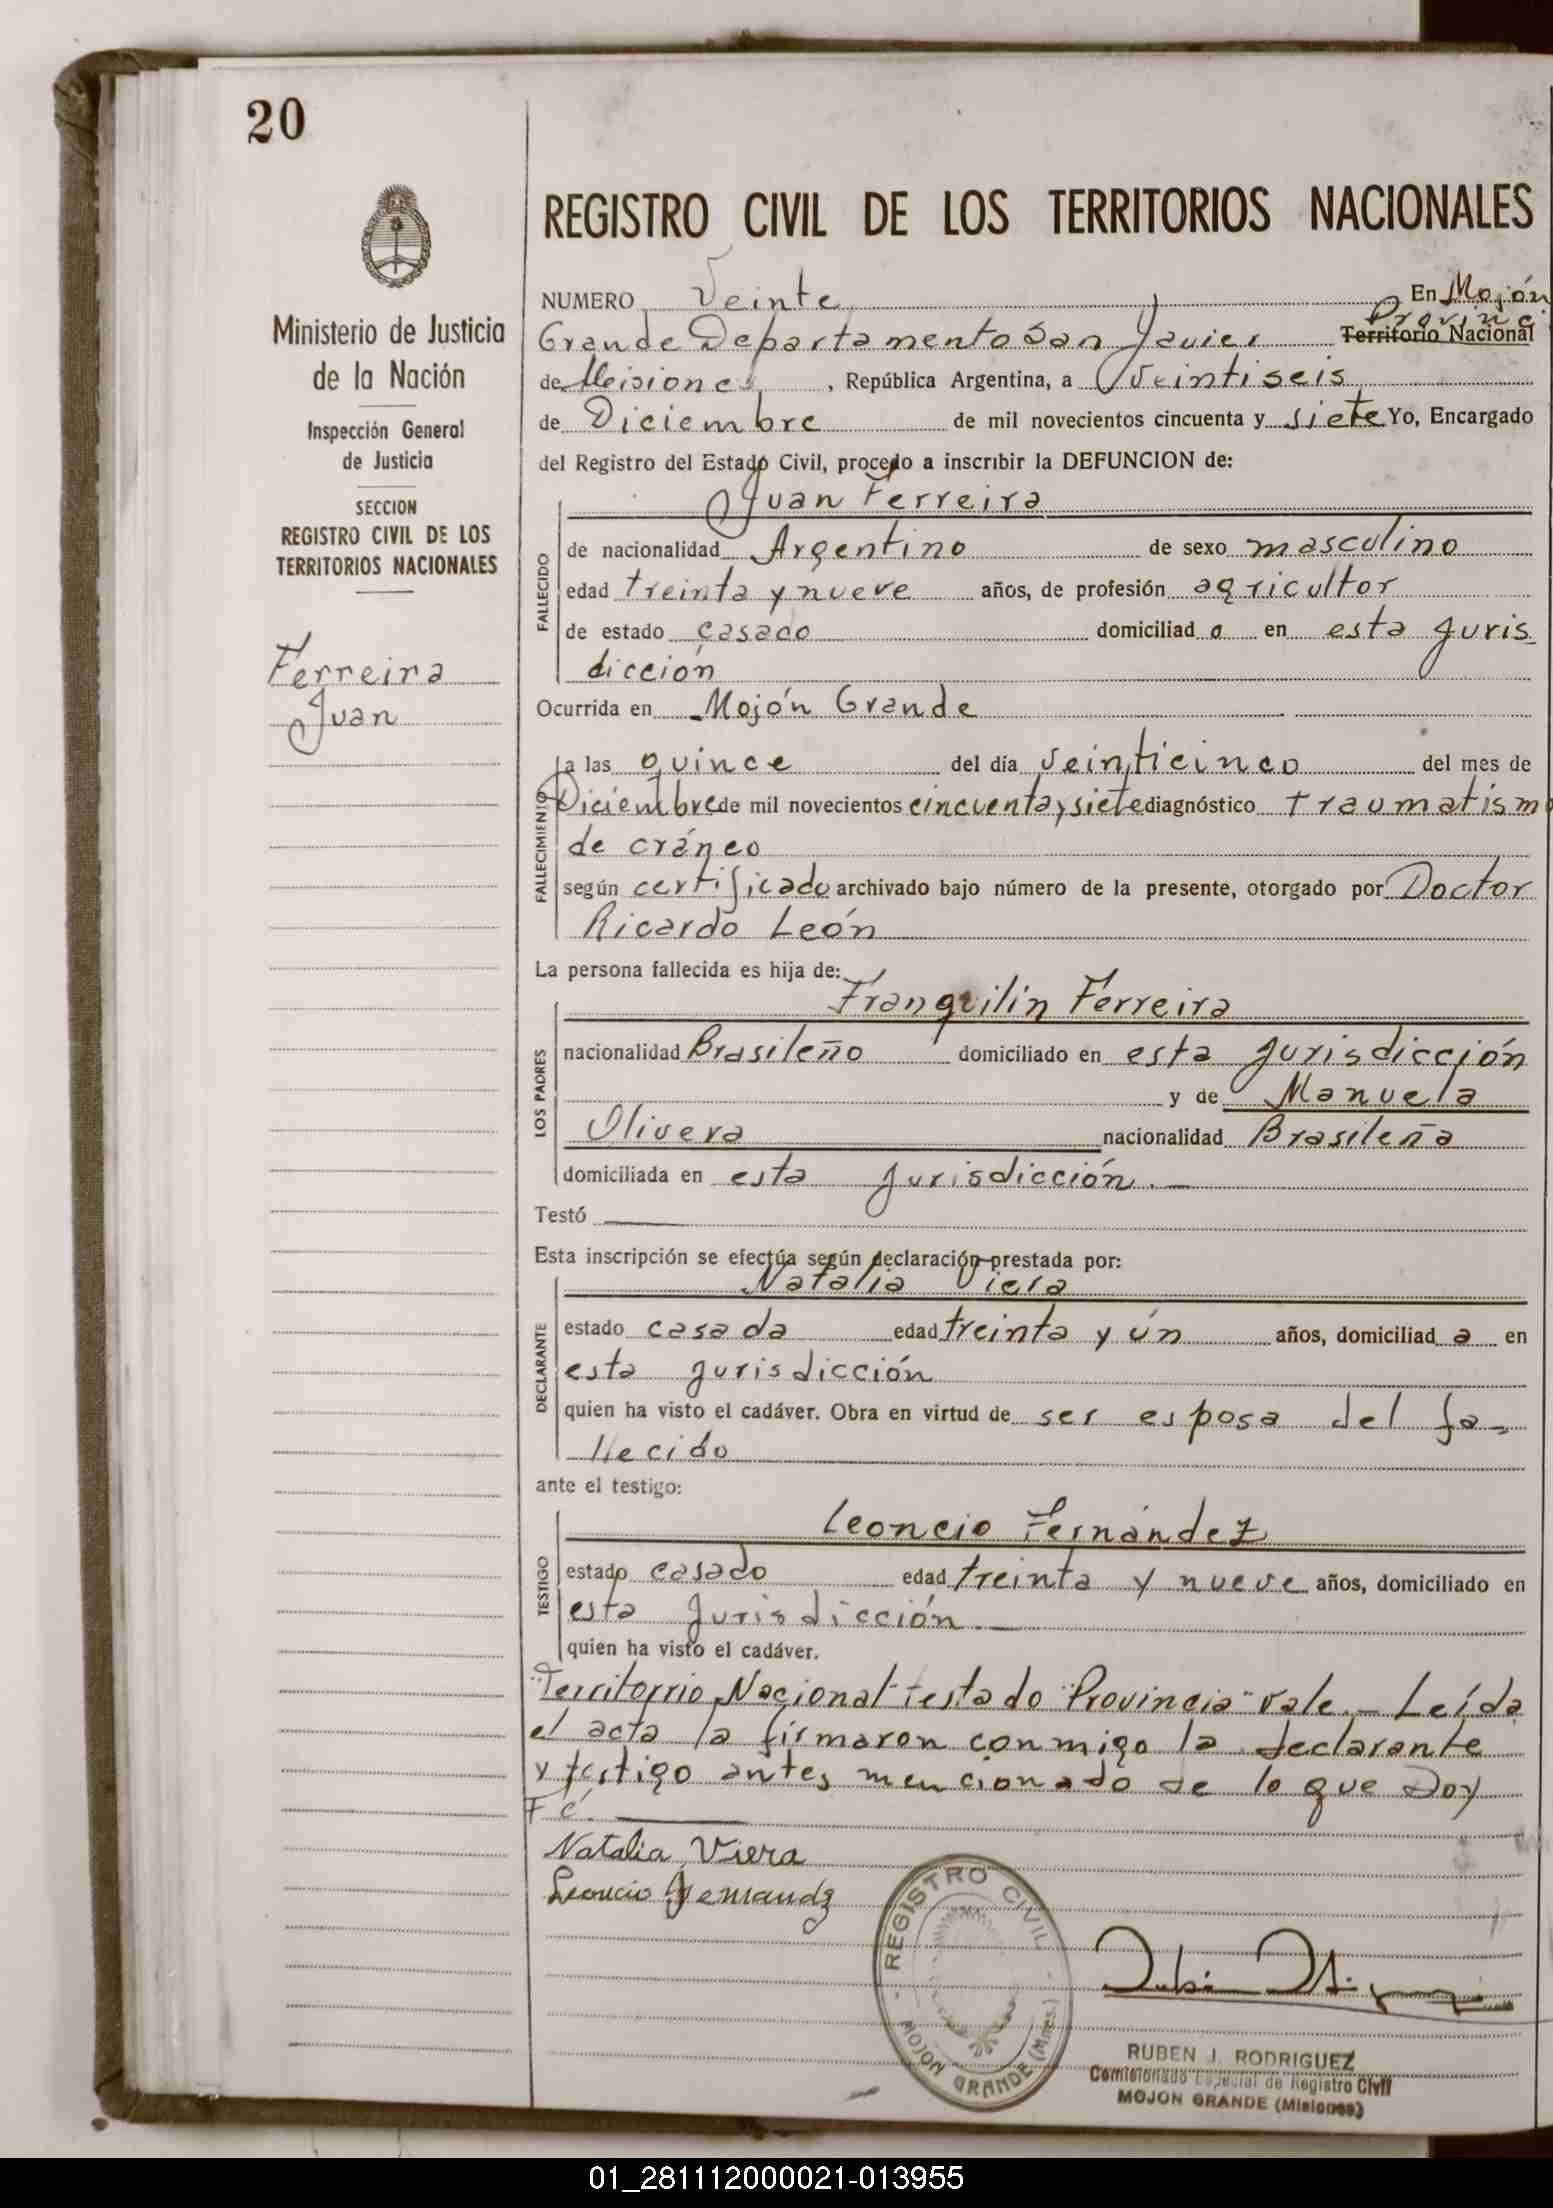 20
Ministerio de Justicia
de la Nación
Inspección General
de Justicia
SECCION
REGISTRO CIVIL DE LOS
TERRITORIOS NACIONALES
Ferreira
Juan
REGISTRO CIVIL DE LOS TERRITORIOS NACIONALES
NUMERO Veinte En Mojón
Grande Departamento San Javier Territorio Nacional Provinci
de Misiones, República Argentina, a Veintiseis
de Diciembre de mil novecientos cincuenta y siete Yo, Encargado
del Registro del Estado Civil, procedo a inscribir la DEFUNCION de:
Juan Ferreira
FALLECIDO
de nacionalidad Argentino de sexo masculino
edad treinta y nueve años, de profesión agricultor
de estado casado domiciliad o en esta juris
dicción
Ocurrida en Mojón Grande
FALLECIMIENTO
a las quince del día veinticinco del mes de
Diciembre de mil novecientos cincuenta y siete diagnóstico traumatismo
de cráneo
según certificado archivado bajo número de la presente, otorgado por Doctor
Ricardo León
La persona fallecida es hija de:
Franquilin Ferreira
LOS PADRES
nacionalidad Brasileño domiciliado en esta jurisdicción
y de Manuela
Olivera nacionalidad Brasileña
domiciliada en esta jurisdicción.—
Testó
Esta inscripción se efectúa según declaración prestada por:
Natalia Viera
DECLARANTE
estado casada edad treinta y ún años, domiciliad a en
esta jurisdicción
quien ha visto el cadáver. Obra en virtud de ser esposa del fa-
llecido
ante el testigo:
Leoncio Fernández
TESTIGO
estado casado edad treinta y nueve años, domiciliado en
esta jurisdicción
quien ha visto el cadáver.
"Territorrio Nacional" testado "Provincia" vale.— Leída
el acta la firmaron conmigo la declarante
y testigo antes mencionado de lo que Doy
Fé.
Natalia Viera
Leoncio Fernandz
REGISTRO CIVIL
MOJON GRANDE (Mnes.)
RUBEN J. RODRIGUEZ
Comisionado Especial de Registro Civil
MOJON GRANDE (Misiones)
01_281112000021-013955